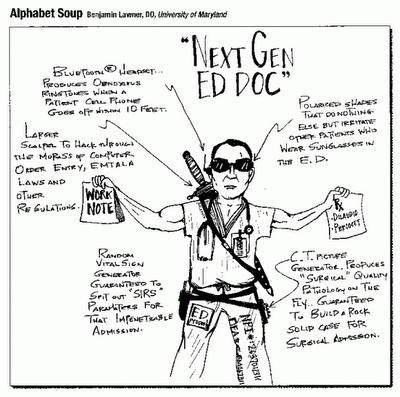 Alphabet Soup Benjamin Lawner, DO, University of Maryland
"NEXT GEN
ED DOC"
BLUETOOTH® HEADSET...
PRODUCES OBNOXIOUS
RINGTONES WHEN A
PATIENT CELL PHONE
GOES OFF WITHIN 10 FEET.
POLARIZED SHADES
THAT DO NOTHING
ELSE BUT IRRITATE
OTHER PATIENTS WHO
WEAR SUNGLASSES IN
THE E.D.
LARGER
SCALPEL TO HACK THROUGH
THE MORASS OF COMPUTER
ORDER ENTRY, EMTALA
LAWS AND
OTHER
REGULATIONS.
WORK
NOTE
Rx
-DILAUDID
-PERCOCET
RANDOM
VITAL SIGN
GENERATOR
GUARANTEED TO
SPIT OUT "SIRS"
PARAMETERS FOR
THAT IMPENETRABLE
ADMISSION.
C.T. PICTURE
GENERATOR. PRODUCES
"SURGICAL" QUALITY
PATHOLOGY ON THE
FLY. GUARANTEED
TO BUILD A ROCK
SOLID CASE FOR
SURGICAL ADMISSION.
ED